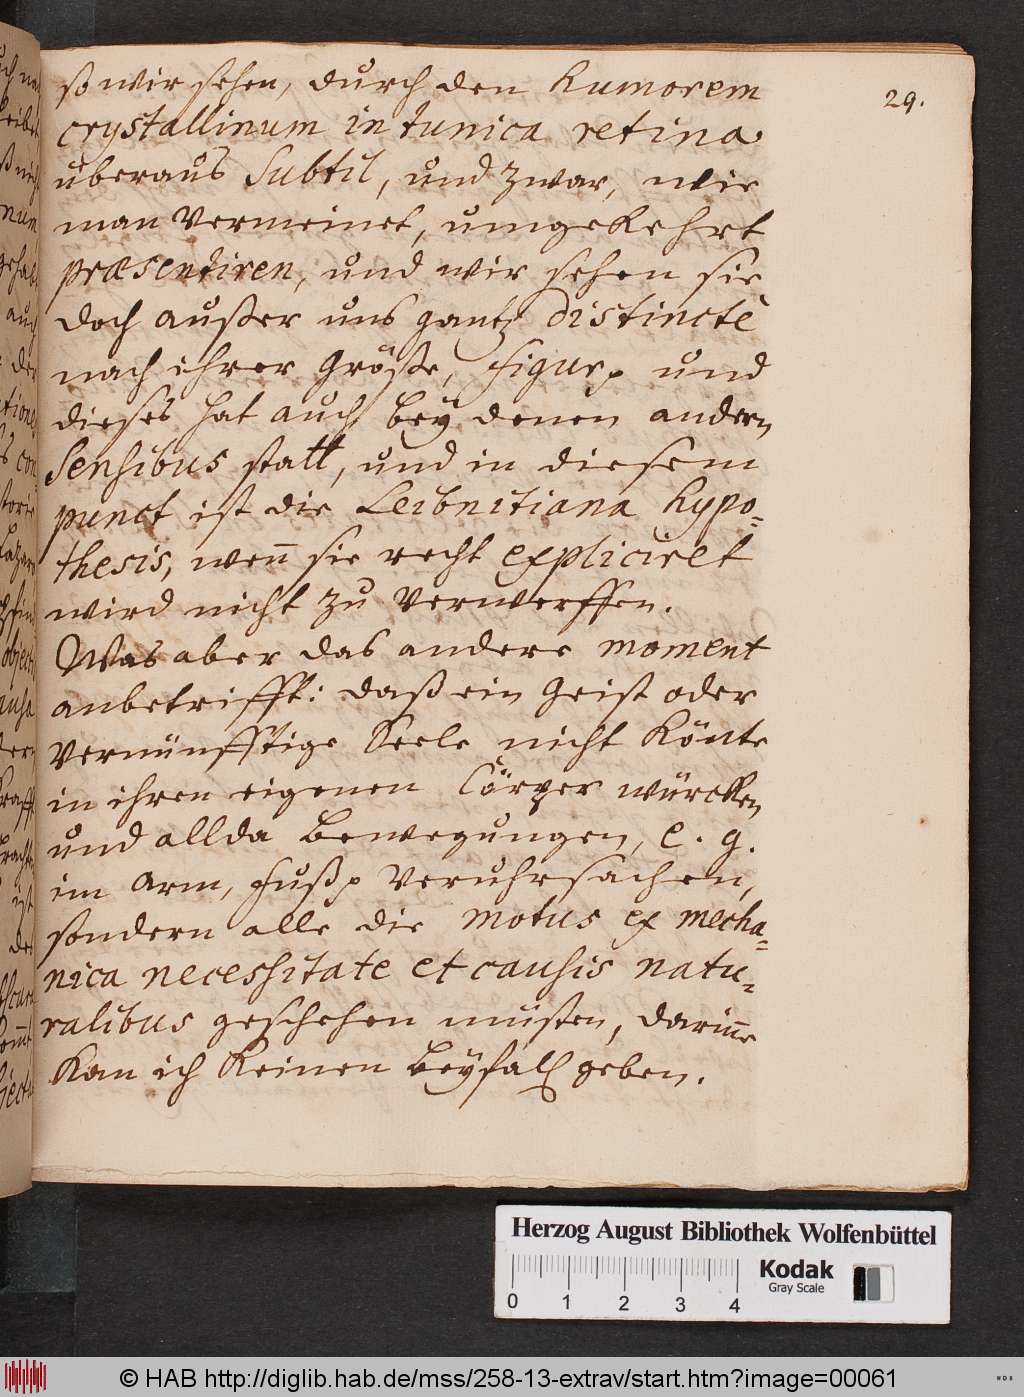 29.
so wir sehen, durch den humorem
crystallinum in tunica retina
überaus subtil, und zwar, wie
man vermeinet, umgekehrt
præsentiren, und wir sehen sie
doch außer uns gantz distinctè
nach ihrer Größe, figur, und
dieses hat auch bey denen andern
Sensibus statt, und in diesem
punct ist die Leibnitiana hypo-
thesis, wen̄ sie recht expliciret
wird nicht zu verwerffen.
Was aber das andere moment
anbetrifft: daß ein Geist oder
vernünfftige Seele nicht könte
in ihren eigenen Cörper würcken
und allda bewegungen, e. g.
im arm, fuß veruhrsachen,
sondern alle die motus ex mecha-
nica necessitate et causis natu-
ralibus geschehen müsten, darin̄e
kan ich keinen beyfall geben.
Herzog August Bibliothek Wolfenbüttel
Kodak
Gray Scale
0 1 2 3 4
© HAB http://diglib.hab.de/mss/258-13-extrav/start.htm?image=00061